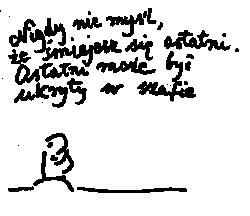 Nigdy nie myśl,
że śmiejesz się ostatni.
Ostatni może być
ukryty w szafie